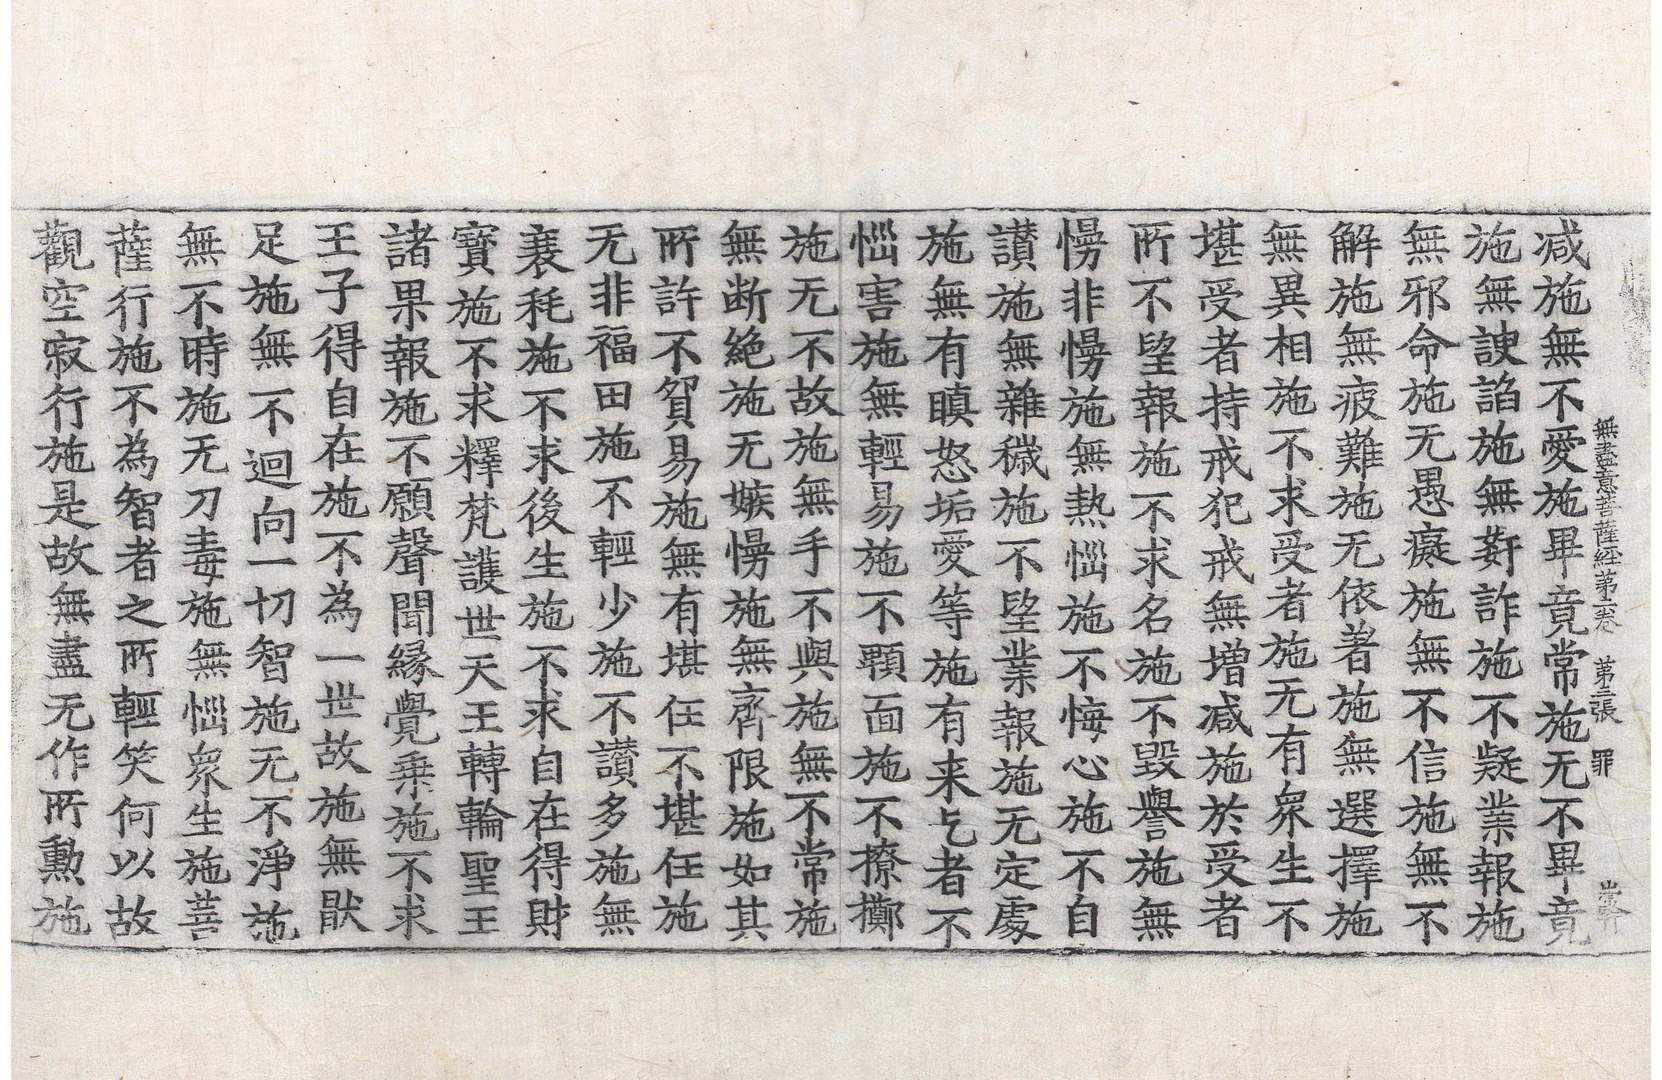 無盡意菩薩經第一卷 第三張 罪
減施無不愛施畢竟常施无不畢竟
施無諛諂施無姧詐施不疑業報施
無邪命施无愚癡施無不信施無不
解施無疲難施无依著施無選擇施
無異相施不求受者施无有衆生不
堪受者持戒犯戒無增減施於受者
所不望報施不求名施不毀譽施無
慢非慢施無熱惱施不悔心施不自
讃施無雜穢施不望業報施无定處
施無有瞋怒垢愛等施有来乞者不
惱害施無輕易施不顋面施不撩擲
施无不故施無手不與施無不常施
無断絶施无嫉慢施無齊限施如其
所許不貿易施無有堪任不堪任施
无非福田施不輕少施不讃多施無
衰秏施不求後生施不求自在得財
寳施不求釋梵護世天王轉輪聖王
諸果報施不願聲聞縁覺乗施不求
王子得自在施不為一世故施無猒
足施無不迴向一切智施无不淨施
無不時施无刀毒施無惱衆生施菩
薩行施不為智者之所輕笑何以故
觀空寂行施是故無盡无作所勲施